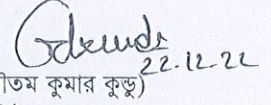 22.12.22
তিম কুমার কুন্ডু)